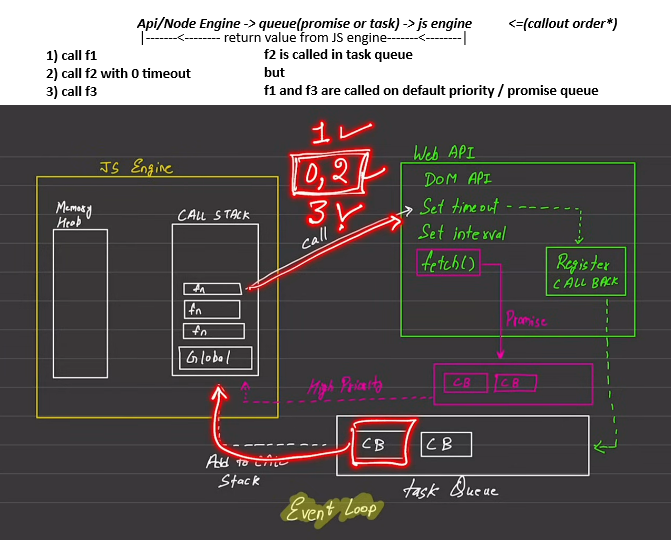 Api/Node Engine -> queue(promise or task) -> js engine <=(callout order*)
|-------<-------- return value from JS engine-------<--------|
1) call f1 f2 is called in task queue
2) call f2 with 0 timeout but
3) call f3 f1 and f3 are called on default priority / promise queue
1
0, 2
3
JS Engine
Memory
Heap
CALL STACK
fn
fn
fn
Global
call
Web API
DOM API
Set timeout
Set interval
fetch()
Register
CALL BACK
Promise
High Priority
CB CB
CB CB
Add to Call
Stack
task Queue
Event Loop